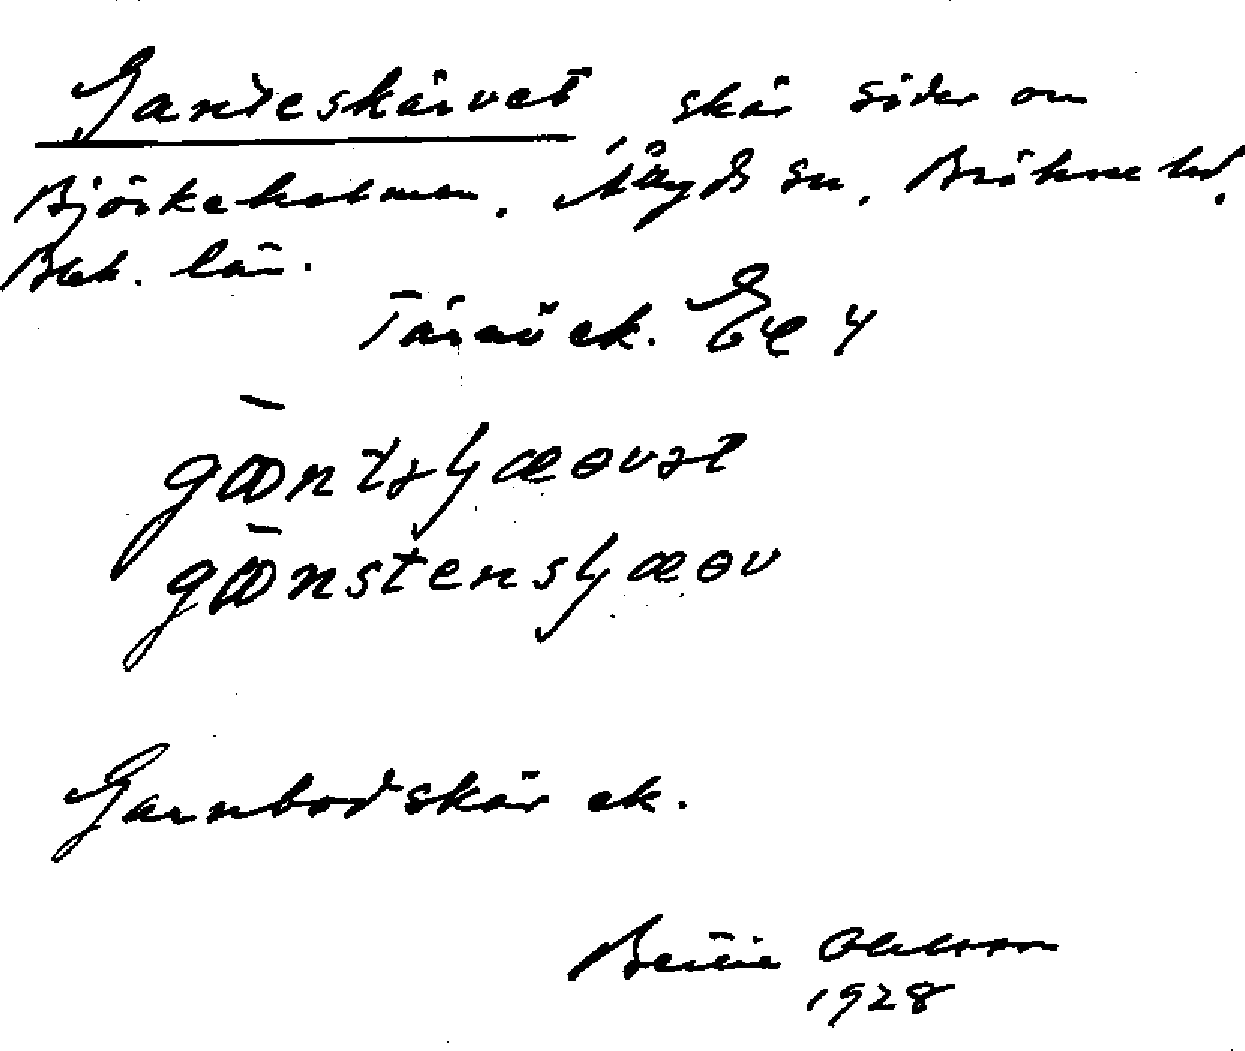 Ganteskärvet skär söder om
Björkeholmen. Åryds sn. Bräkne hd.
Blek. län.
Tärnö ek.
gɷntsʃæəvət
gɷnstensʃæəv
Garnbodskär ek.
Bertil Ohlsson
1928